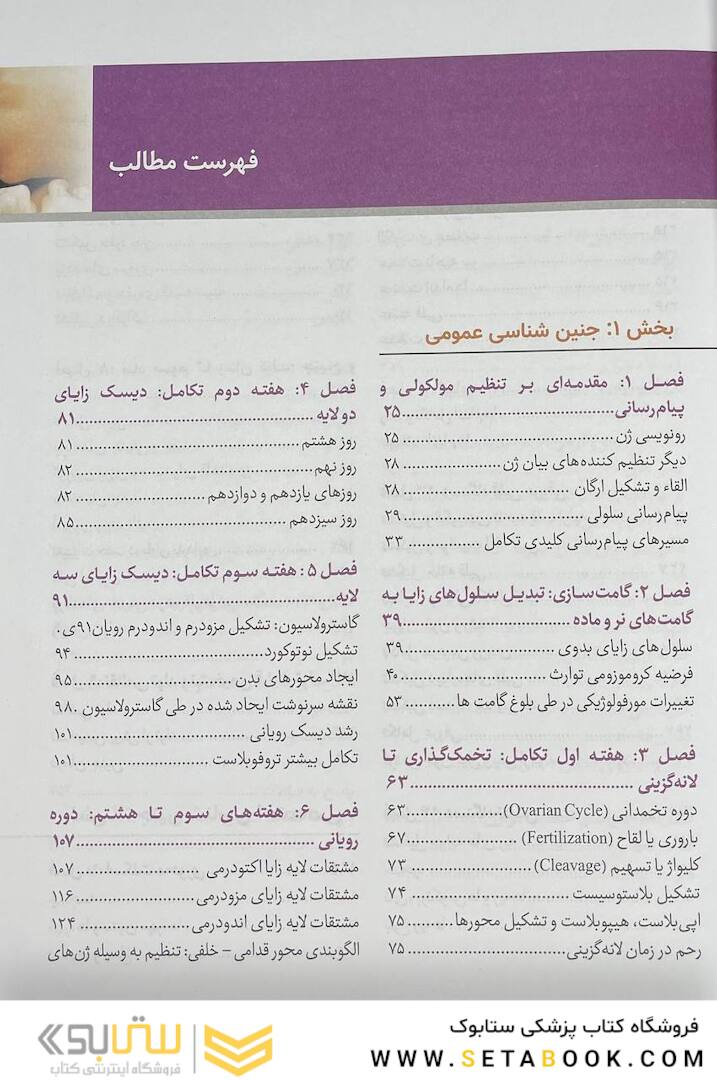 فهرست مطالب
بخش ۱: جنین شناسی عمومی
فصل ۱: مقدمه‌ای بر تنظیم مولکولی و
پیام‌رسانی ............ ۲۵
رونویسی ژن ............ ۲۵
دیگر تنظیم کننده‌های بیان ژن ............ ۲۸
القاء و تشکیل ارگان ............ ۲۸
پیام‌رسانی سلولی ............ ۲۹
مسیرهای پیام‌رسانی کلیدی تکامل ............ ۳۳
فصل ۲: گامت‌سازی: تبدیل سلول‌های زایا به
گامت‌های نر و ماده ............ ۳۹
سلول‌های زایای بدوی ............ ۳۹
فرضیه کروموزومی توارث ............ ۴۰
تغییرات مورفولوژیکی در طی بلوغ گامت ها ............ ۵۳
فصل ۳: هفته اول تکامل: تخمک‌گذاری تا
لانه‌گزینی ............ ۶۳
دوره تخمدانی (Ovarian Cycle) ............ ۶۳
باروری یا لقاح (Fertilization) ............ ۶۷
کلیواژ یا تسهیم (Cleavage) ............ ۷۳
تشکیل بلاستوسیست ............ ۷۴
اپی‌بلاست، هیپوبلاست و تشکیل محورها ............ ۷۵
رحم در زمان لانه‌گزینی ............ ۷۵
فصل ۴: هفته دوم تکامل: دیسک زایای
دولایه ............ ۸۱
روز هشتم ............ ۸۱
روز نهم ............ ۸۲
روزهای یازدهم و دوازدهم ............ ۸۲
روز سیزدهم ............ ۸۵
فصل ۵: هفته سوم تکامل: دیسک زایای سه
لایه ............ ۹۱
گاسترولاسیون: تشکیل مزودرم و اندودرم رویان۹۱ی.
تشکیل نوتوکورد ............ ۹۴
ایجاد محورهای بدن ............ ۹۵
نقشه سرنوشت ایجاد شده در طی گاسترولاسیون . ۹۸
رشد دیسک رویانی ............ ۱۰۱
تکامل بیشتر تروفوبلاست ............ ۱۰۱
فصل ۶: هفته‌های سوم تا هشتم: دوره
رویانی ............ ۱۰۷
مشتقات لایه زایا اکتودرمی ............ ۱۰۷
مشتقات لایه زایای مزودرمی ............ ۱۱۶
مشتقات لایه زایای اندودرمی ............ ۱۲۴
الگوبندی محور قدامی - خلفی: تنظیم به وسیله ژن‌های
فروشگاه کتاب پزشکی ستابوک
WWW.SETABOOK.COM
ستابوک
فروشگاه اینترنتی کتاب